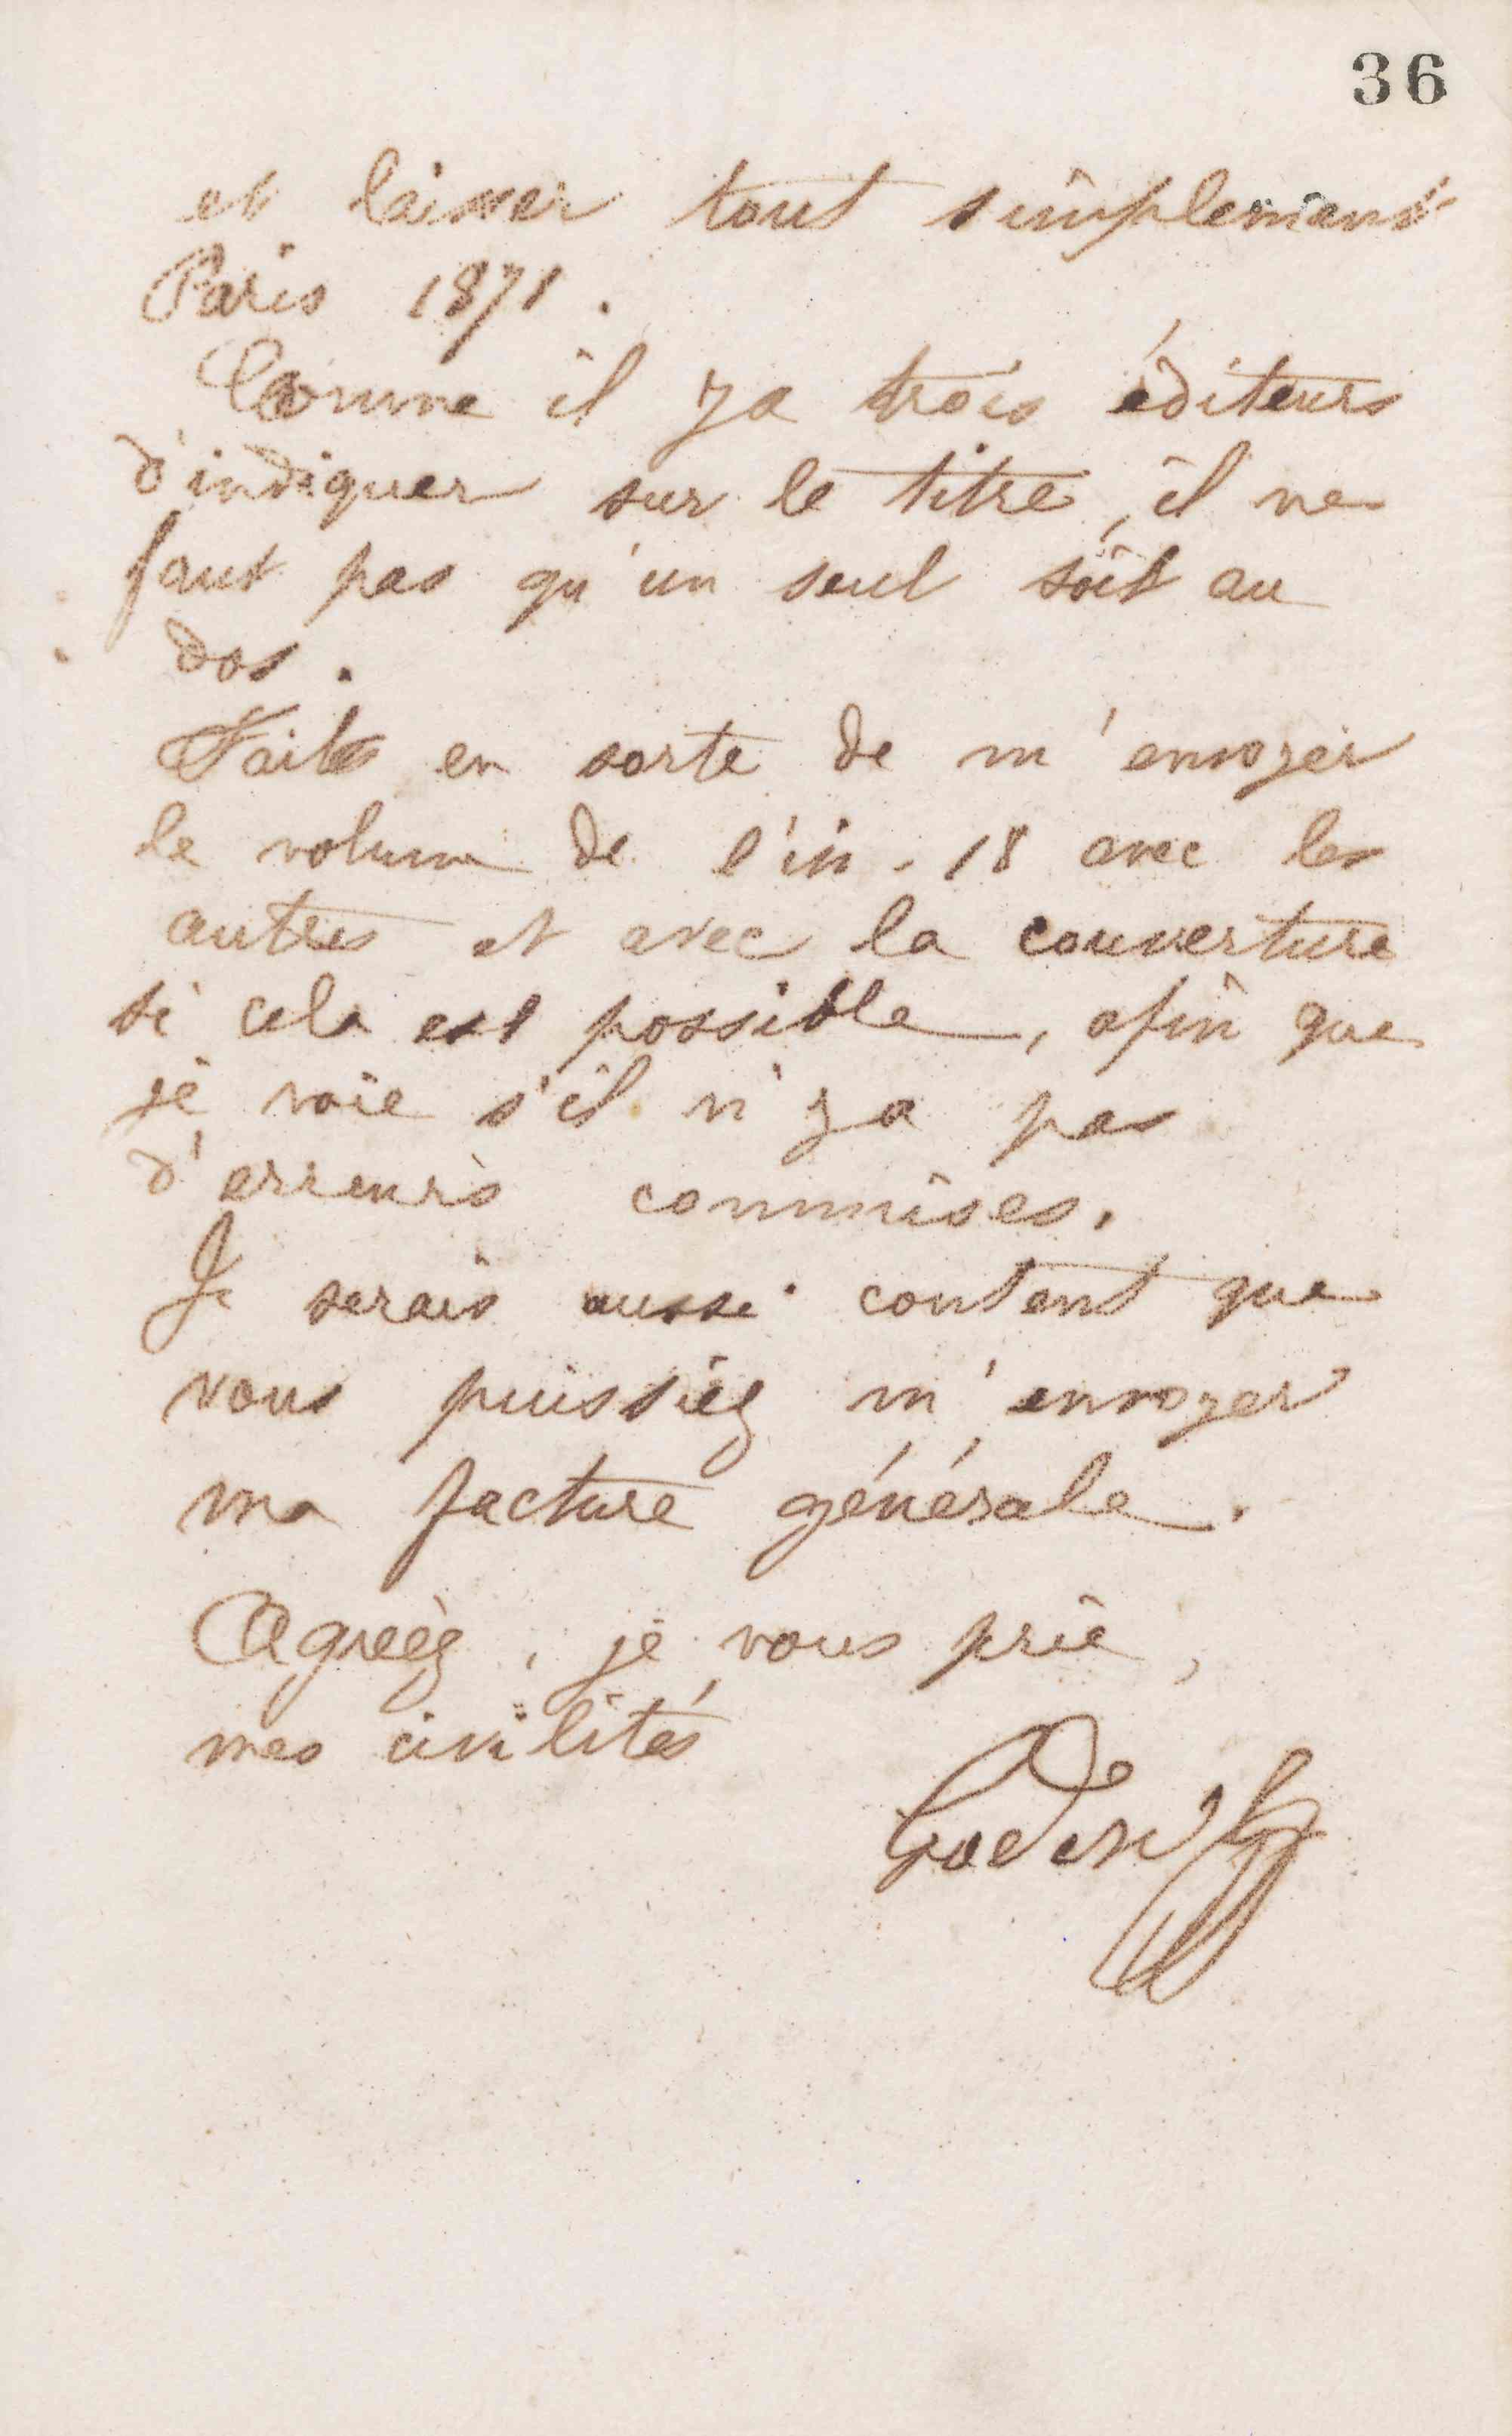 36
et laisser tout simplement
Paris 1871.
Comme il y a trois éditeurs
d'indiquer sur le titre, il ne
faut pas qu'un seul soit au
dos.
Faites en sorte de m'envoyer
le volume de l'in-18 avec les
autres et avec la couverture
si cela est possible, afin que
je voie s'il n'y a pas
d'erreurs commises.
Je serais aussi content que
vous puissiez m'envoyer
ma facture générale.
Agréez, je vous prie,
mes civilités
Godin